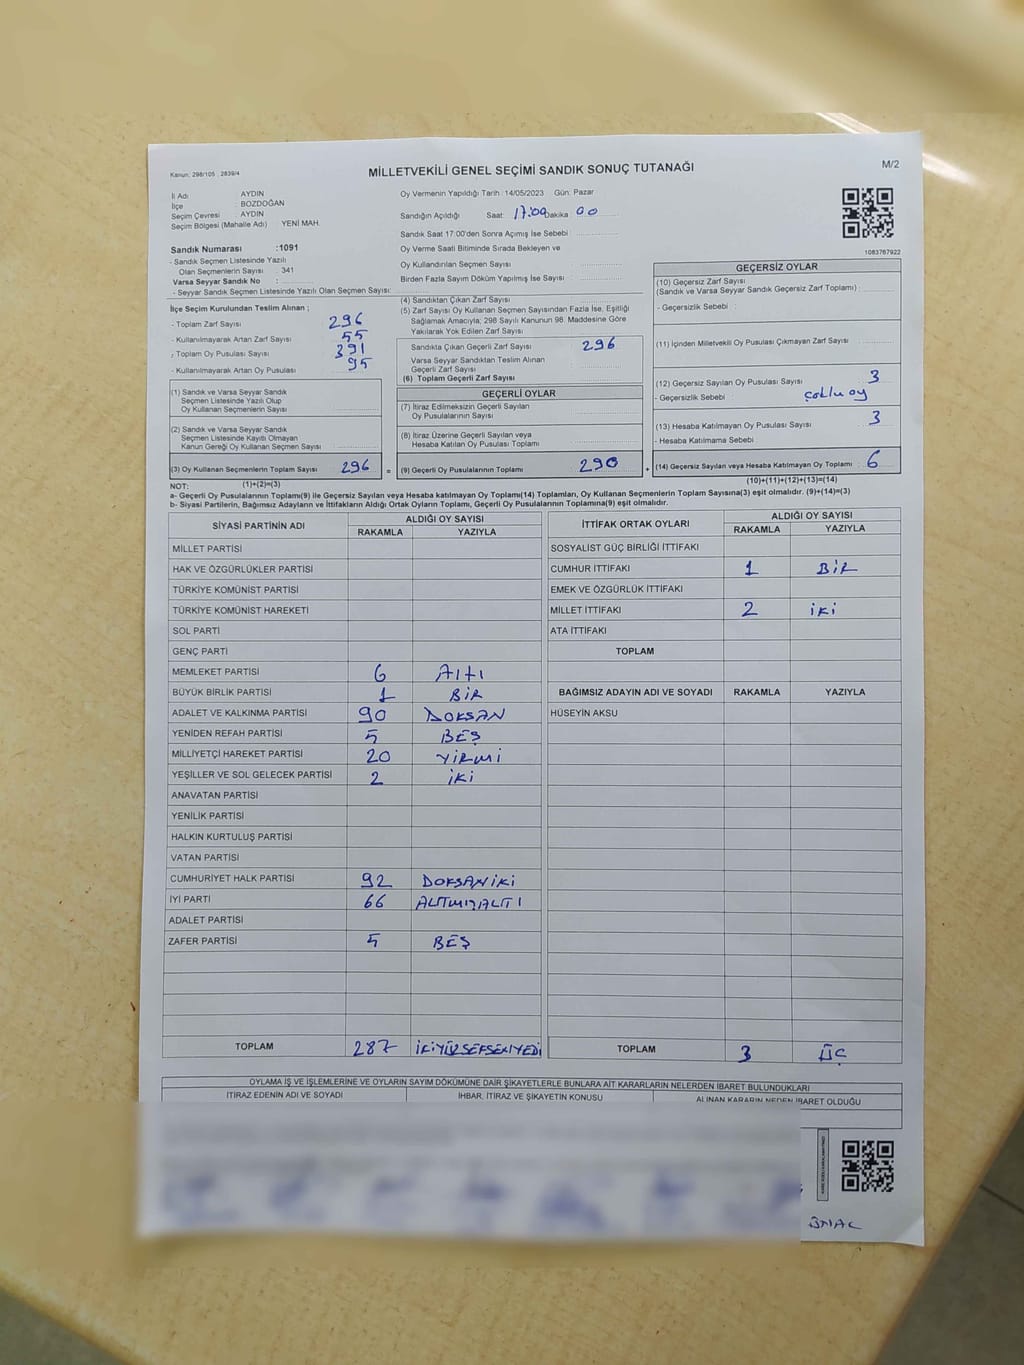 Kanun: 298/105 2839/4
MİLLETVEKİLİ GENEL SEÇİMİ SANDIK SONUÇ TUTANAĞI
M/2
İl Adı AYDIN
İlçe : BOZDOĞAN
Seçim Çevresi AYDIN
Seçim Bölgesi (Mahalle Adı) YENİ MAH.
Sandık Numarası :1091
- Sandık Seçmen Listesinde Yazılı
Olan Seçmenlerin Sayısı : 341
Varsa Seyyar Sandık No :
- Seyyar Sandık Seçmen Listesinde Yazılı Olan Seçmen Sayısı:
Oy Vermenin Yapıldığı Tarih : 14/05/2023 Gün: Pazar
Sandığın Açıldığı Saat: 17:00 Dakika 00
Sandık Saat 17:00'den Sonra Açımış İse Sebebi :
Oy Verme Saati Bitiminde Sırada Bekleyen ve
Oy Kullandırılan Seçmen Sayısı
Birden Fazla Sayım Döküm Yapılmış İse Sayısı :
1083767922
İlçe Seçim Kurulundan Teslim Alınan ;
- Toplam Zarf Sayısı 296
- Kullanılmayarak Artan Zarf Sayısı 55
- Toplam Oy Pusulası Sayısı 391
- Kullanılmayarak Artan Oy Pusulası 95
(1) Sandık ve Varsa Seyyar Sandık
Seçmen Listesinde Yazılı Olup
Oy Kullanan Seçmenlerin Sayısı
(2) Sandık ve Varsa Seyyar Sandık
Seçmen Listesinde Kayıtlı Olmayan
Kanun Gereği Oy Kullanan Seçmen Sayısı
(3) Oy Kullanan Seçmenlerin Toplam Sayısı 296 =
(1)+(2)=(3)
(4) Sandıktan Çıkan Zarf Sayısı
(5) Zarf Sayısı Oy Kullanan Seçmen Sayısından Fazla İse, Eşitliği
Sağlamak Amacıyla; 298 Sayılı Kanunun 98. Maddesine Göre
Yakılarak Yok Edilen Zarf Sayısı
Sandıkta Çıkan Geçerli Zarf Sayısı 296
Varsa Seyyar Sandıktan Teslim Alınan
Geçerli Zarf Sayısı
(6) Toplam Geçerli Zarf Sayısı
GEÇERLİ OYLAR
(7) İtiraz Edilmeksizin Geçerli Sayılan
Oy Pusulalarının Sayısı
(8) İtiraz Üzerine Geçerli Sayılan veya
Hesaba Katılan Oy Pusulası Toplamı
(9) Geçerli Oy Pusulalarının Toplamı 290 +
GEÇERSİZ OYLAR
(10) Geçersiz Zarf Sayısı
(Sandık ve Varsa Seyyar Sandık Geçersiz Zarf Toplamı) :
- Geçersizlik Sebebi :
(11) İçinden Milletvekili Oy Pusulası Çıkmayan Zarf Sayısı
(12) Geçersiz Sayılan Oy Pusulası Sayısı 3
- Geçersizlik Sebebi : çoklu oy
(13) Hesaba Katılmayan Oy Pusulası Sayısı : 3
- Hesaba Katılmama Sebebi
(14) Geçersiz Sayılan veya Hesaba Katılmayan Oy Toplamı : 6
(10)+(11)+(12)+(13)=(14)
NOT:
a- Geçerli Oy Pusulalarının Toplamı(9) ile Geçersiz Sayılan veya Hesaba katılmayan Oy Toplamı(14) Toplamları, Oy Kullanan Seçmenlerin Toplam Sayısına(3) eşit olmalıdır. (9)+(14)=(3)
b- Siyasi Partilerin, Bağımsız Adayların ve İttifakların Aldığı Ortak Oyların Toplamı, Geçerli Oy Pusulalarının Toplamına(9) eşit olmalıdır.
SİYASİ PARTİNİN ADI ALDIĞI OY SAYISI
RAKAMLA YAZIYLA
MİLLET PARTİSİ
HAK VE ÖZGÜRLÜKLER PARTİSİ
TÜRKİYE KOMÜNİST PARTİSİ
TÜRKİYE KOMÜNİST HAREKETİ
SOL PARTİ
GENÇ PARTİ
MEMLEKET PARTİSİ 6 AltI
BÜYÜK BİRLİK PARTİSİ 1 BİR
ADALET VE KALKINMA PARTİSİ 90 DOKSAN
YENİDEN REFAH PARTİSİ 5 BEŞ
MİLLİYETÇİ HAREKET PARTİSİ 20 YİRMİ
YEŞİLLER VE SOL GELECEK PARTİSİ 2 İKİ
ANAVATAN PARTİSİ
YENİLİK PARTİSİ
HALKIN KURTULUŞ PARTİSİ
VATAN PARTİSİ
CUMHURİYET HALK PARTİSİ 92 DOKSANİKİ
İYİ PARTİ 66 ALTMIŞALTI
ADALET PARTİSİ
ZAFER PARTİSİ 5 BEŞ
TOPLAM 287 İKİYÜZSEKSENYEDİ
İTTİFAK ORTAK OYLARI ALDIĞI OY SAYISI
RAKAMLA YAZIYLA
SOSYALİST GÜÇ BİRLİĞİ İTTİFAKI
CUMHUR İTTİFAKI 1 BİR
EMEK VE ÖZGÜRLÜK İTTİFAKI
MİLLET İTTİFAKI 2 İKİ
ATA İTTİFAKI
TOPLAM
BAĞIMSIZ ADAYIN ADI VE SOYADI RAKAMLA YAZIYLA
HÜSEYİN AKSU
TOPLAM 3 ÜÇ
OYLAMA İŞ VE İŞLEMLERİNE VE OYLARIN SAYIM DÖKÜMÜNE DAİR ŞİKAYETLERLE BUNLARA AİT KARARLARIN NELERDEN İBARET BULUNDUKLARI
İTİRAZ EDENİN ADI VE SOYADI İHBAR, İTİRAZ VE ŞİKAYETİN KONUSU ALINAN KARARIN NEDEN İBARET OLDUĞU